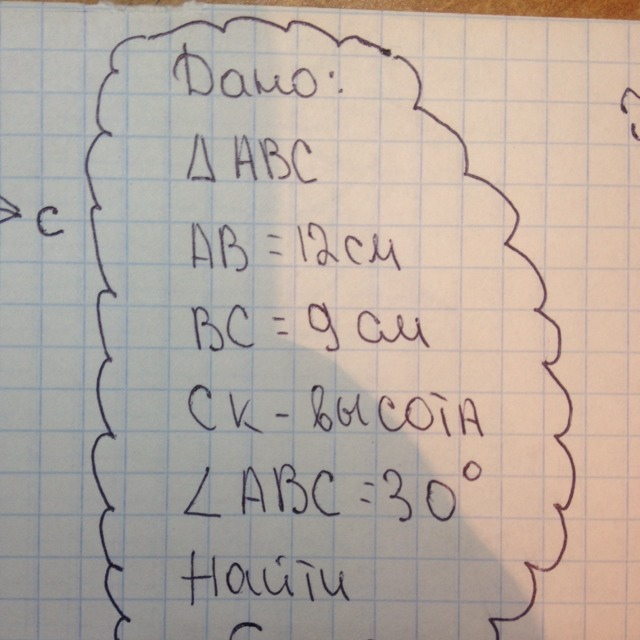 Дано:
Δ ABC
C
AB = 12 см
BC = 9 см
CK - высота
∠ ABC = 30°
Найти